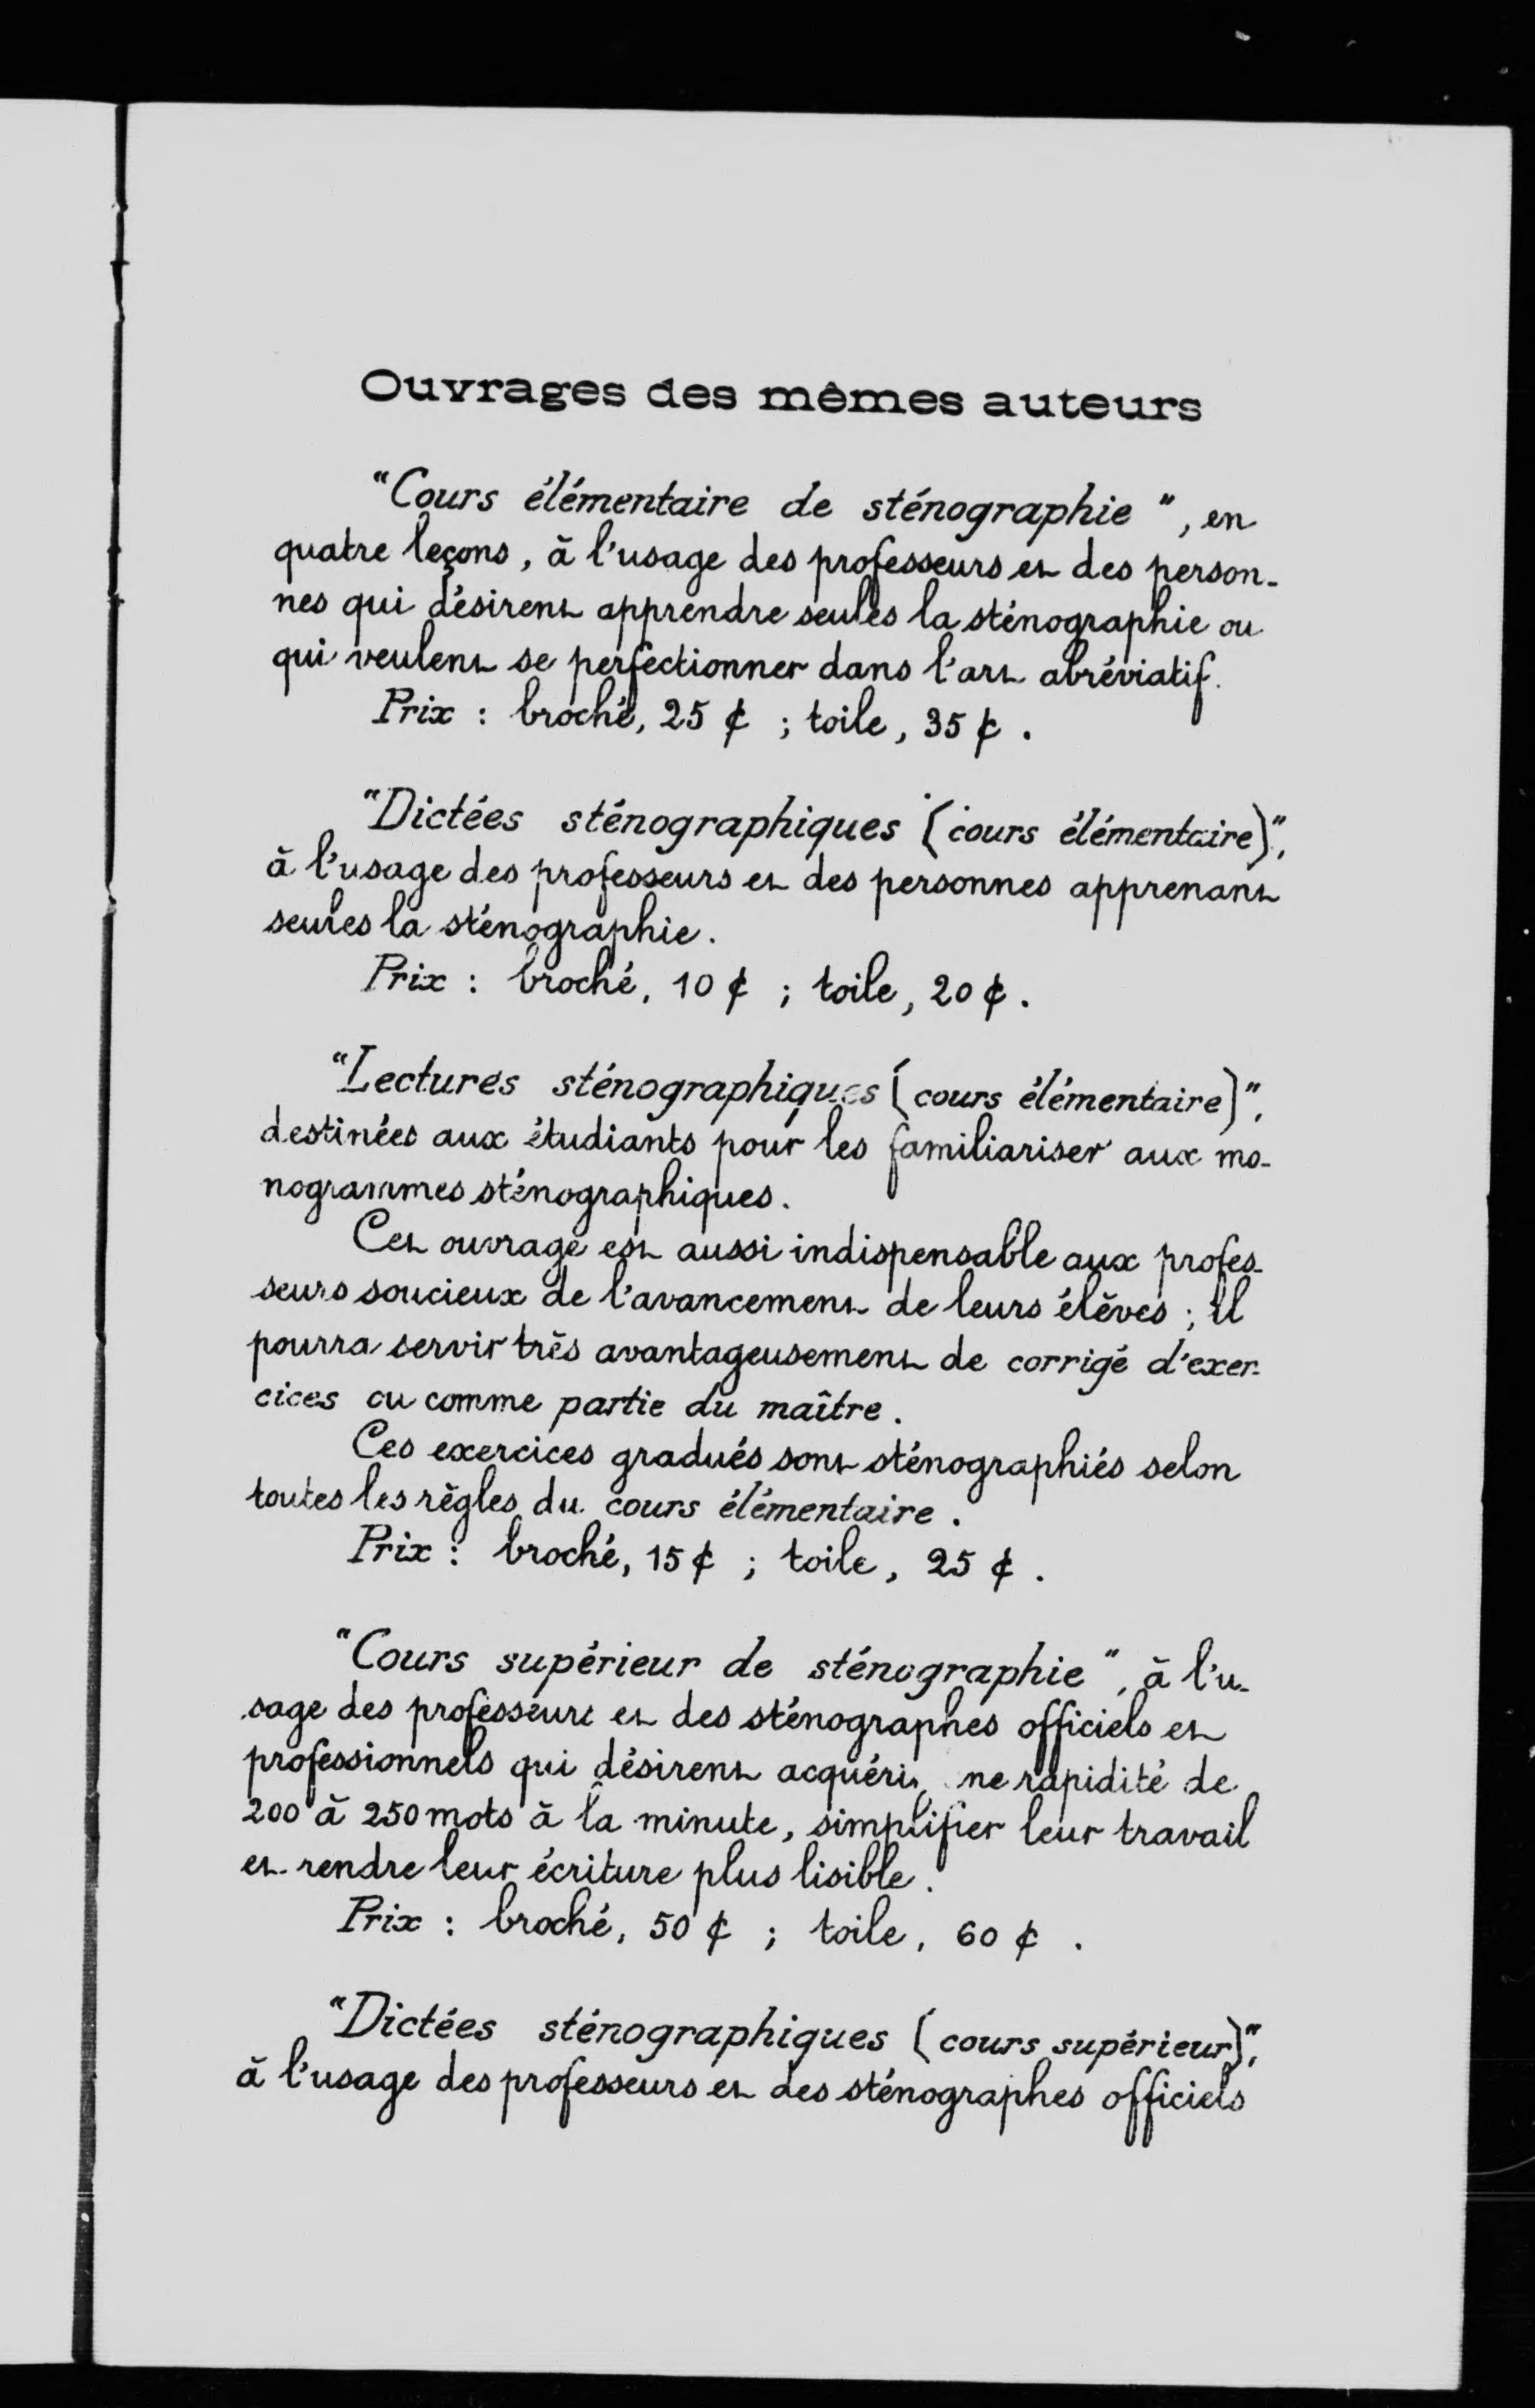 Ouvrages des mêmes auteurs
"Cours élémentaire de sténographie", en
quatre leçons, à l'usage des professeurs et des person-
nes qui désirent apprendre seules la sténographie ou
qui veulent se perfectionner dans l'art abréviatif.
Prix : broché, 25 ¢ ; toile, 35 ¢.
"Dictées sténographiques (cours élémentaire)",
à l'usage des professeurs et des personnes apprenant
seules la sténographie.
Prix : broché, 10 ¢ ; toile, 20 ¢.
"Lectures sténographiques (cours élémentaire)",
destinées aux étudiants pour les familiariser aux mo-
nogrammes sténographiques.
Cet ouvrage est aussi indispensable aux profes-
seurs soucieux de l'avancement de leurs élèves ; il
pourra servir très avantageusement de corrigé d'exer-
cices ou comme partie du maître.
Ces exercices gradués sont sténographiés selon
toutes les règles du cours élémentaire.
Prix : broché, 15 ¢ ; toile, 25 ¢.
"Cours supérieur de sténographie", à l'u-
sage des professeurs et des sténographes officiels et
professionnels qui désirent acquérir ne rapidité de
200 à 250 mots à la minute, simplifier leur travail
et rendre leur écriture plus lisible.
Prix : broché, 50 ¢ ; toile, 60 ¢.
"Dictées sténographiques (cours supérieur)",
à l'usage des professeurs et des sténographes officiels